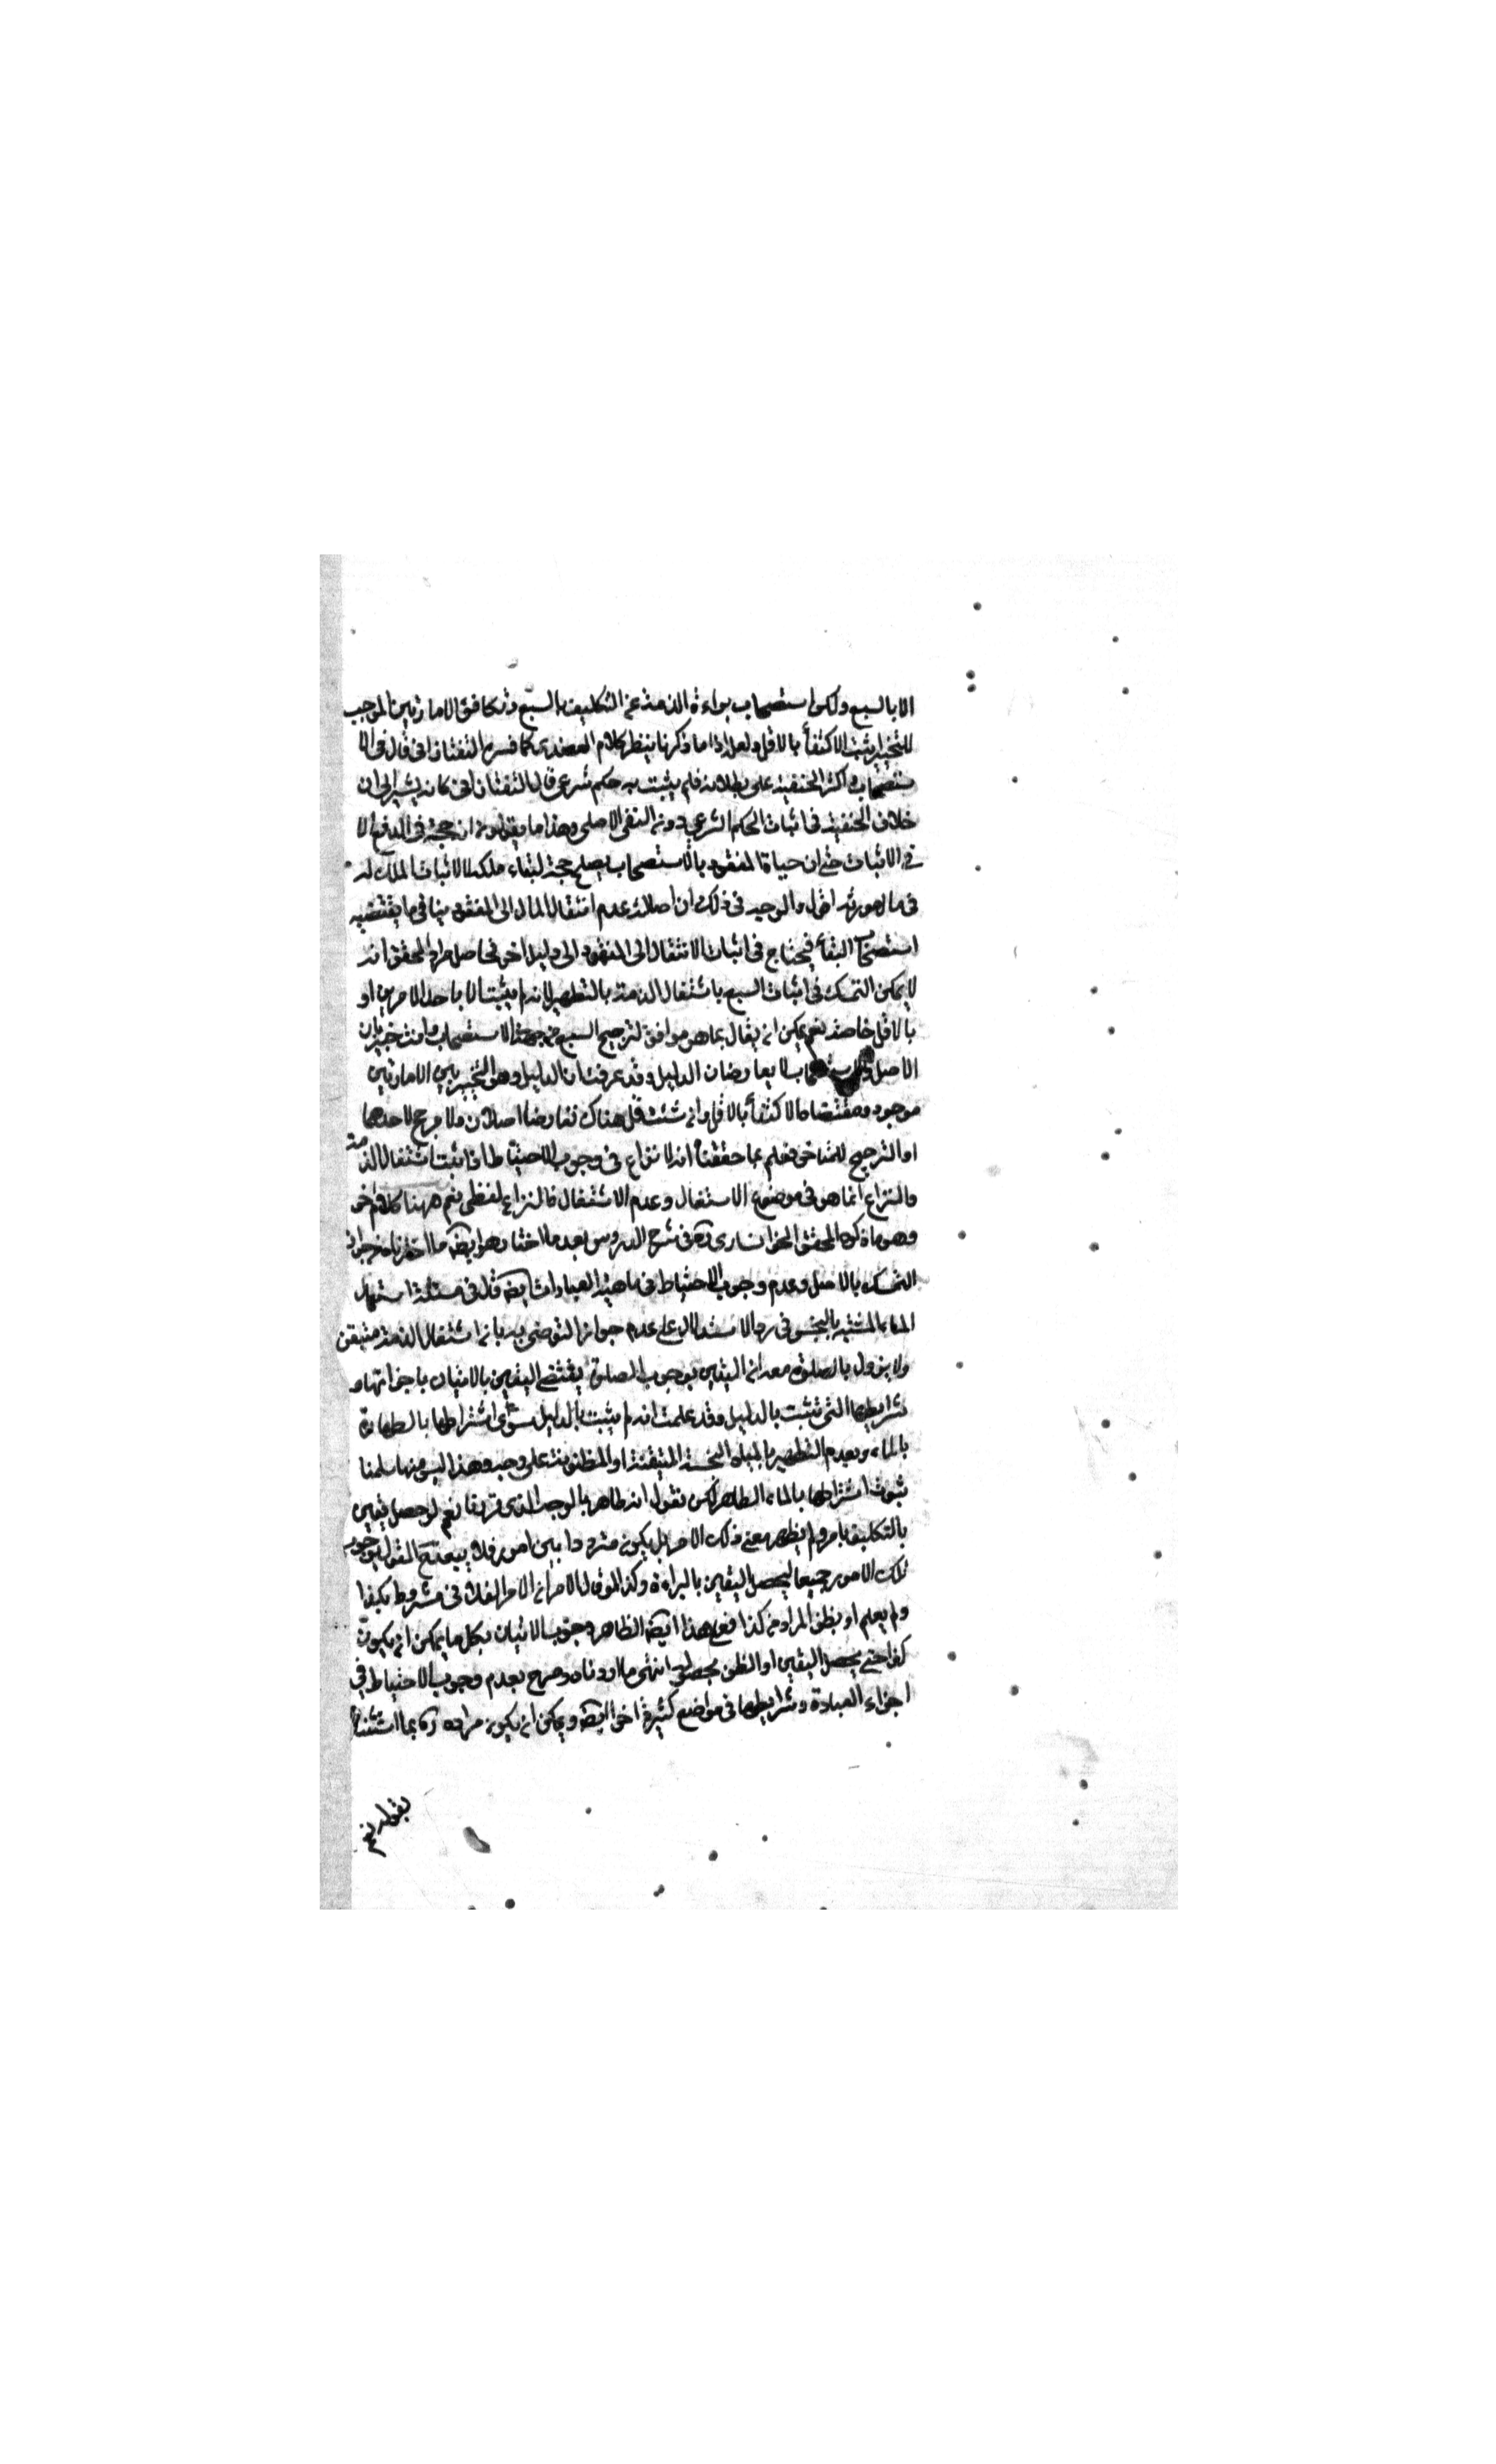 الا بالسبع ولكن استصحاب براءة الذمة عن التكليف بالسبع وتكافؤ الامارتين الموجب
للتخيير يثبت الاكتفأ بالاقل ولعل اذا ما ذكرنا ينظر كلام العضدى كما فسره التفتازانى قال فى الا
ستصحاب واكثر الحنفية على بطلانه فلم يثبت به حكم شرعى قال التفتازانى كانه يشير الى ان
خلاف الحنفية فى اثبات الحكم الشرعى دون النفى الاصلى وهذا ما يقولون انه حجة فى الدفع لا
فى الاثبات حتى ان حياة المفقود بالاستصحاب يصلح حجة لبقاء ملكه لا لاثبات الملك له
فى مال مورثه اقول والوجه فى ذلك ان اصالة عدم انتقال المال الى المفقود ينافى ما يقتضيه
استصحاب البقأ فيحتاج فى اثبات الانتقال الى المفقود الى دليل اخر فحاصل مراد المحقق انه
لا يمكن التمسك فى اثبات السبع باشتغال الذمة بالتطهير لانه لم يثبت الا باحد الامرين او
بالاقل خاصة نعم يمكن ان يقال بما هو موافق لترجيح السبع من جهة الاستصحاب وانت خبير بان
الاصل والاستصحاب لا يعارضان الدليل وقد عرفت ان الدليل وهو التخيير بين الامارتين
موجود ومقتضاها الاكتفأ بالاقل وان شئت قل هناك تعارضا اصلان ولا مرجح لاحدهما
او الترجيح للمتاخر فعلم بما حققنا انه لا نزاع فى وجوب الاحتياط اذا ثبت اشتغال الذمة
والنزاع انما هو فى موضوع الاشتغال وعدم الاشتغال فالنزاع لفظى ثم ههنا كلام اخر
وهو ما ذكره المحقق الخوانسارى ره فى شرح الدروس بعد ما اختار هو ايضا ما اخترناه من جواز
التمسك بالاصل وعدم وجوب الاحتياط فى ماهية العبادات ايضا قال فى مسئلة استعمال
الماء المشتبه بالنجس فى رد الاستدلال على عدم جواز التوضى به بان اشتغال الذمة متيقن
ولا يزول بالصلوة معه ان اليقين بوجوب الصلوة يقتضى اليقين بالاتيان باجزائها و
شرايطها التى تثبت بالدليل وقد علمت انه لم يثبت بالدليل سوى اشتراطها بالطهارة
بالماء وبعدم التطهير بالمياه النجسة المتيقنة او المظنونة على وجه وهذا ليس منها سلمنا
ثبوت اشتراطها بالماء الطاهر لكن نقول انه طاهر بالوجه الذى قررنا نعم لو حصل يقين
بالتكليف بامر ولم يظهر معنى ذلك الامر بل يكون مترددا بين امور فلا يبعد ح القول بوجوب
تلك الامور جميعا ليحصل اليقين بالبراءة وكذا لو قال الامر ان الامر الفلانى مشروط بكذا
ولم يعلم او يظن المراد من كذا فعلى هذا ايضا الظاهر وجوب الاتيان بكل ما يمكن ان يكون
كذا حتى يحصل اليقين او الظن بحصوله انتهى ما اردناه وصرح بعدم وجوب الاحتياط فى
اجزاء العبادة وشرايطها فى مواضع كثيرة اخر ايضا ويمكن ان يكون مراده ره بما استثناه
بقوله نعم